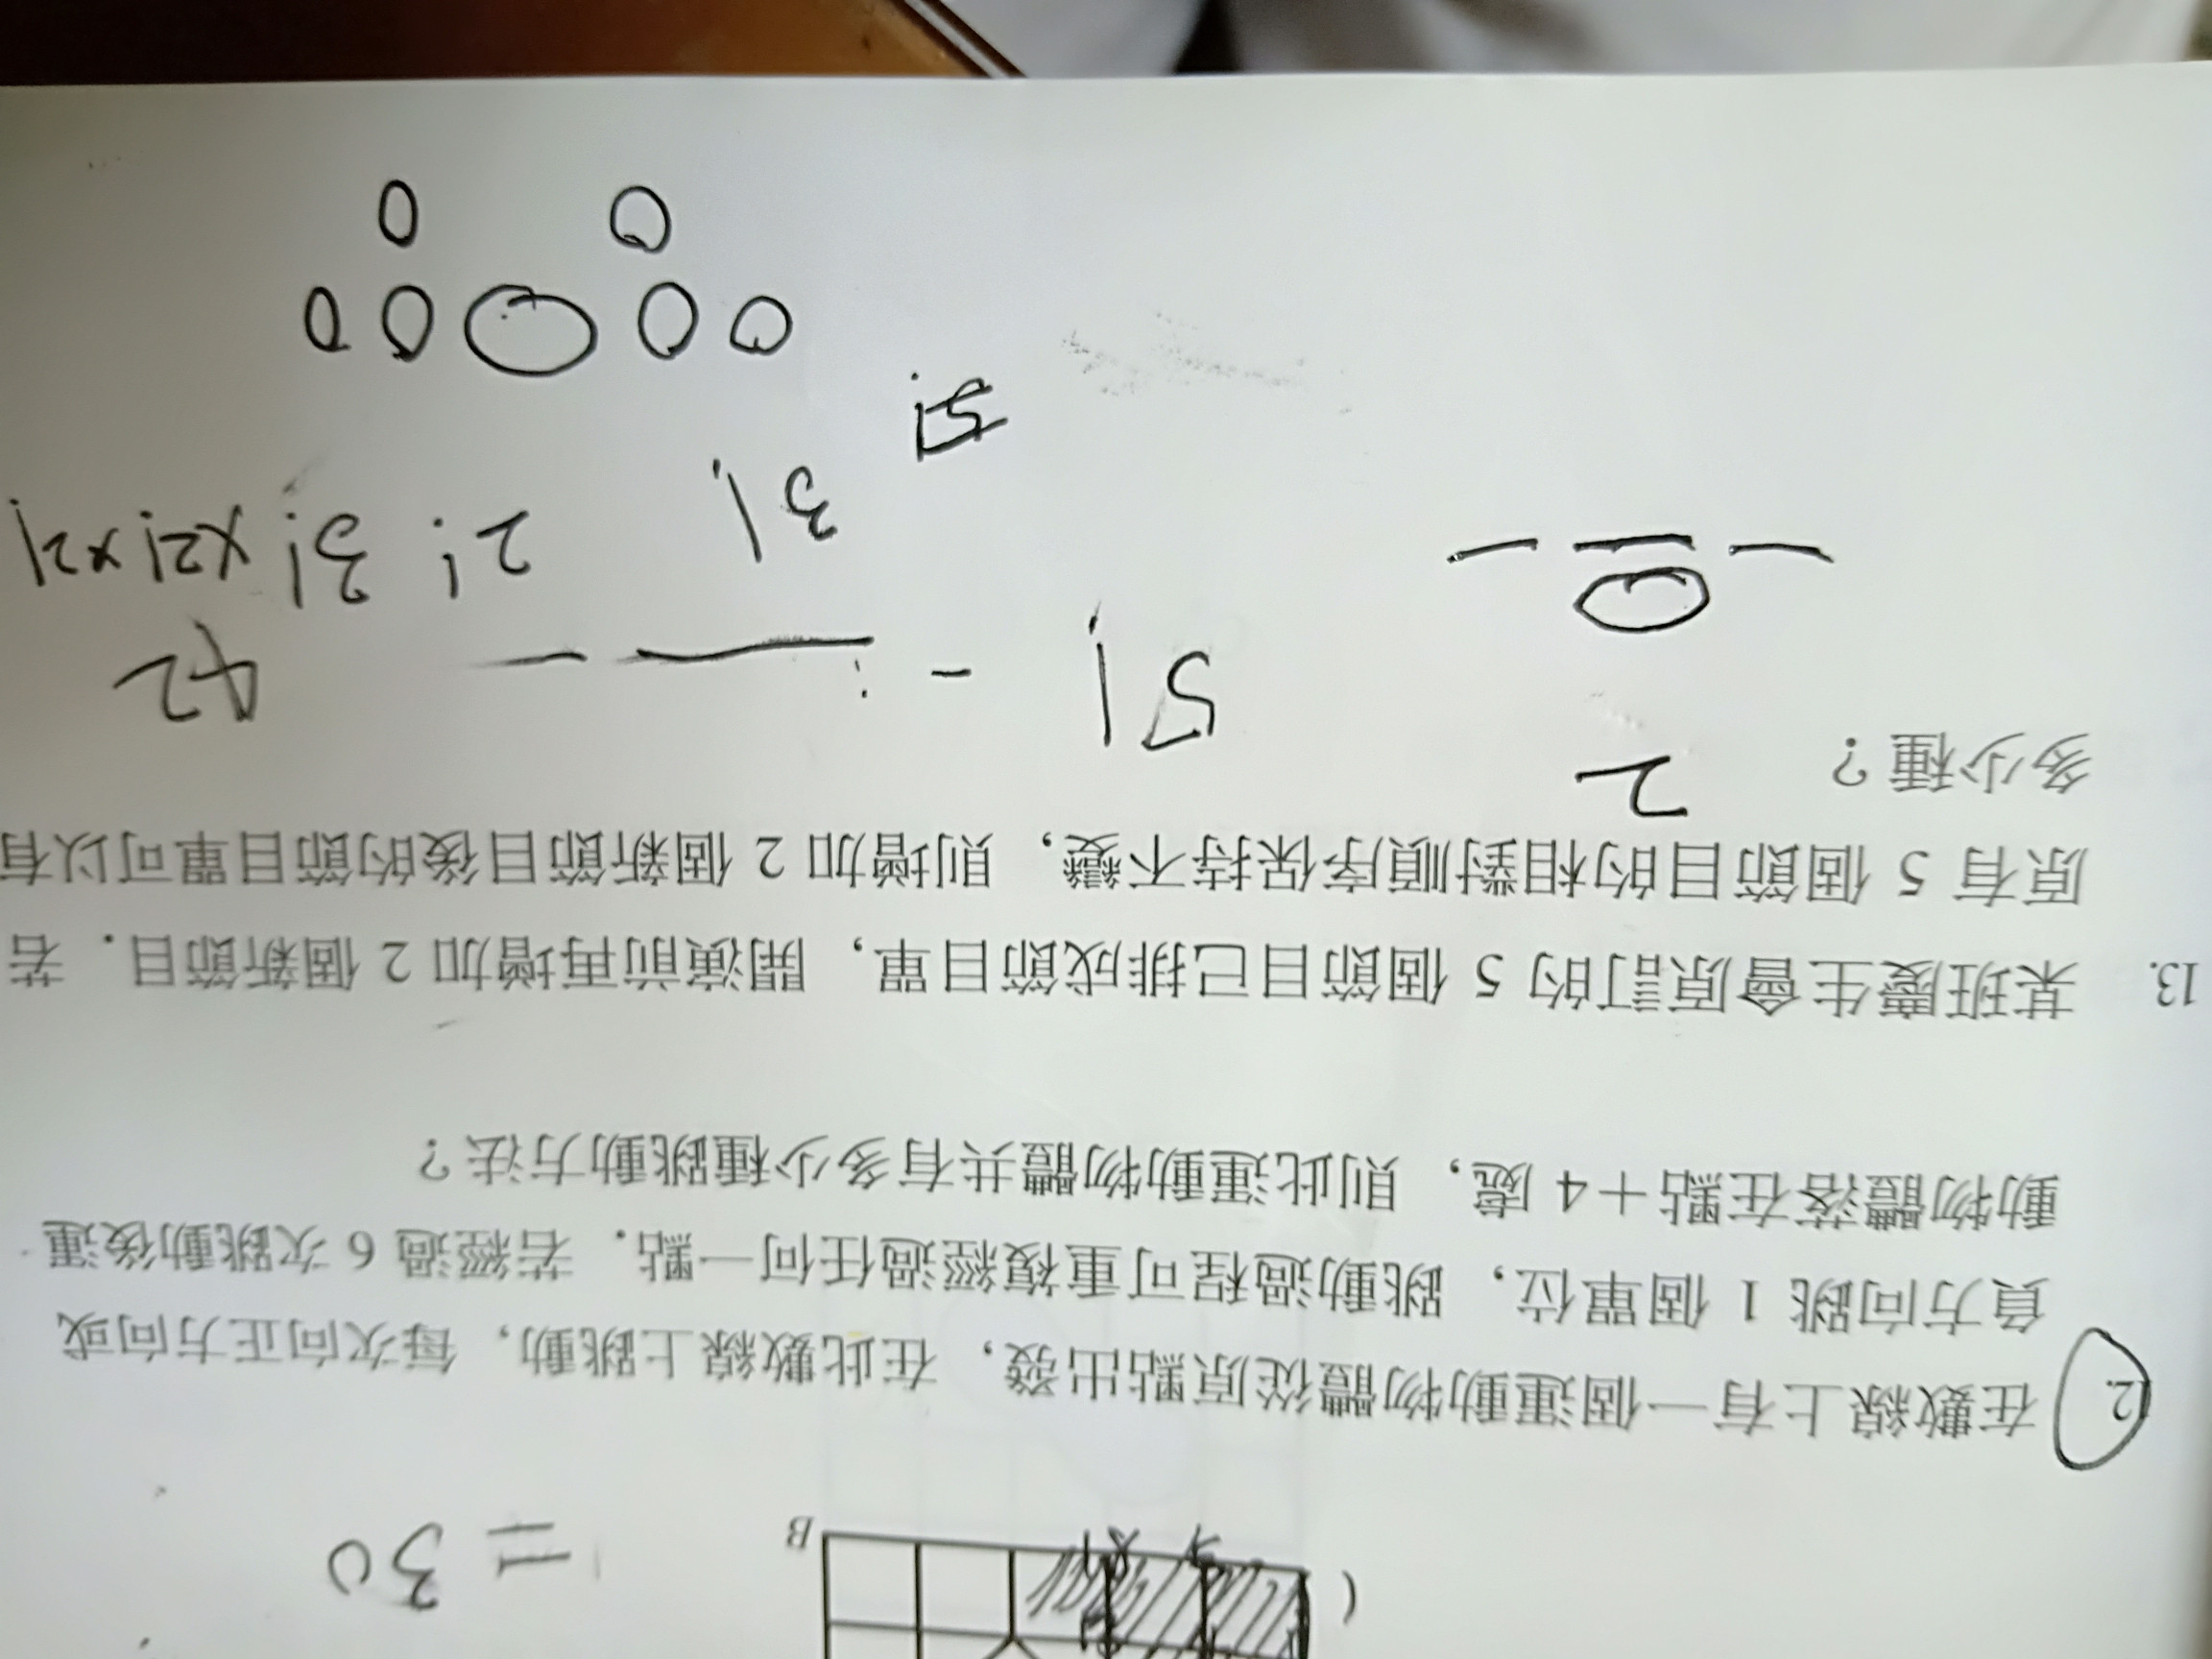 = 30
B
12. 在數線上有一個運動物體從原點出發，在此數線上跳動，每次向正方向或
負方向跳 1 個單位，跳動過程可重複經過任何一點．若經過 6 次跳動後運
動物體落在點＋4 處，則此運動物體共有多少種跳動方法？
13. 某班慶生會原訂的 5 個節目已排成節目單，開演前再增加 2 個新節目．若
原有 5 個節目的相對順序保持不變，則增加 2 個新節目後的節目單可以有
多少種？
2
5!
42
3! 2! 3! ×2! ×2!
5!